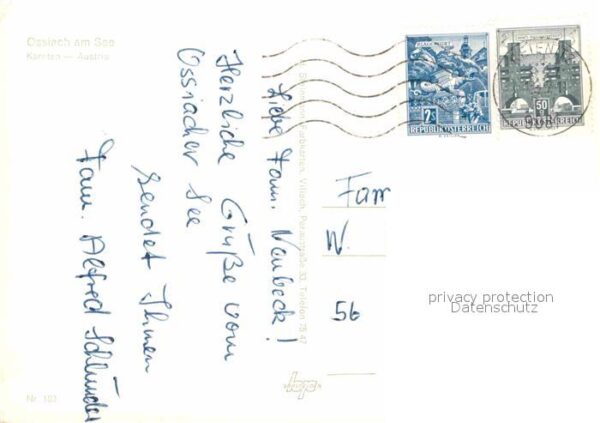 Ossiach am See
Kärnten — Austria
Liebe Fam. Neubeck!
Herzliche Grüße vom
Ossiacher See
sendet Ihnen
Fam. Alfred Schlünder
Farbkarten, Villach,
Telefon 75 47
Fam
W.
56
2 S
REPUBLIK ÖSTERREICH
50
REPUBLIK ÖSTERREICH
privacy protection
Datenschutz
Nr. 103